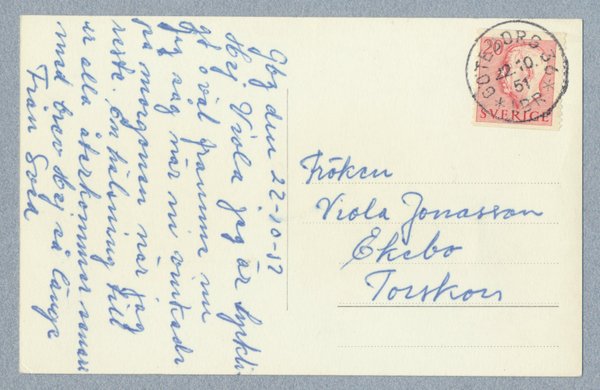 Gbg den 22-10-51
Hej Viola jag är lyckli
gt o väl framme nu
Jag såg när ni vinkade
på morgonen när jag
reste. En hälsning till
er alla återkommer senare
med brev Hej så länge
Från Svea
GÖTEBORG 30
22.10.
51
* BR *
20
SVERIGE
Fröken
Viola Jonasson
Ekebo
Torskors